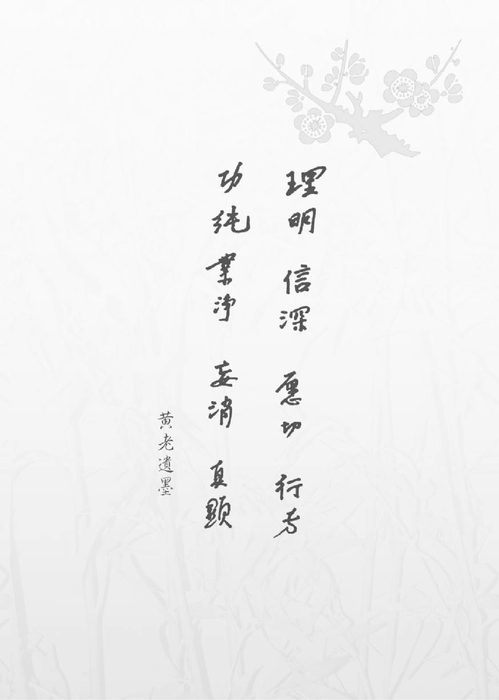 理明 信深 愿切 行专
功纯 業净 妄消 真顯
黄老遺墨